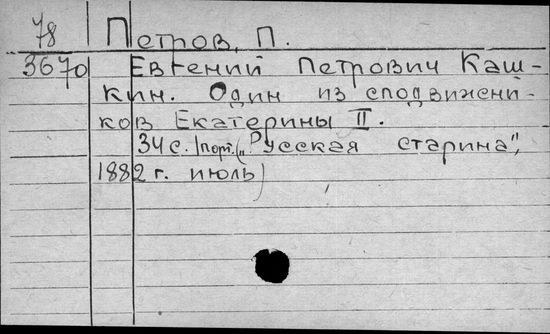 78 Петров, П.
3670 Евгений Петрович Каш-
кин. Один из сподвижени-
ков Екатерины II.
34 с. /порт. („Русская старина",
1882 г. июль)